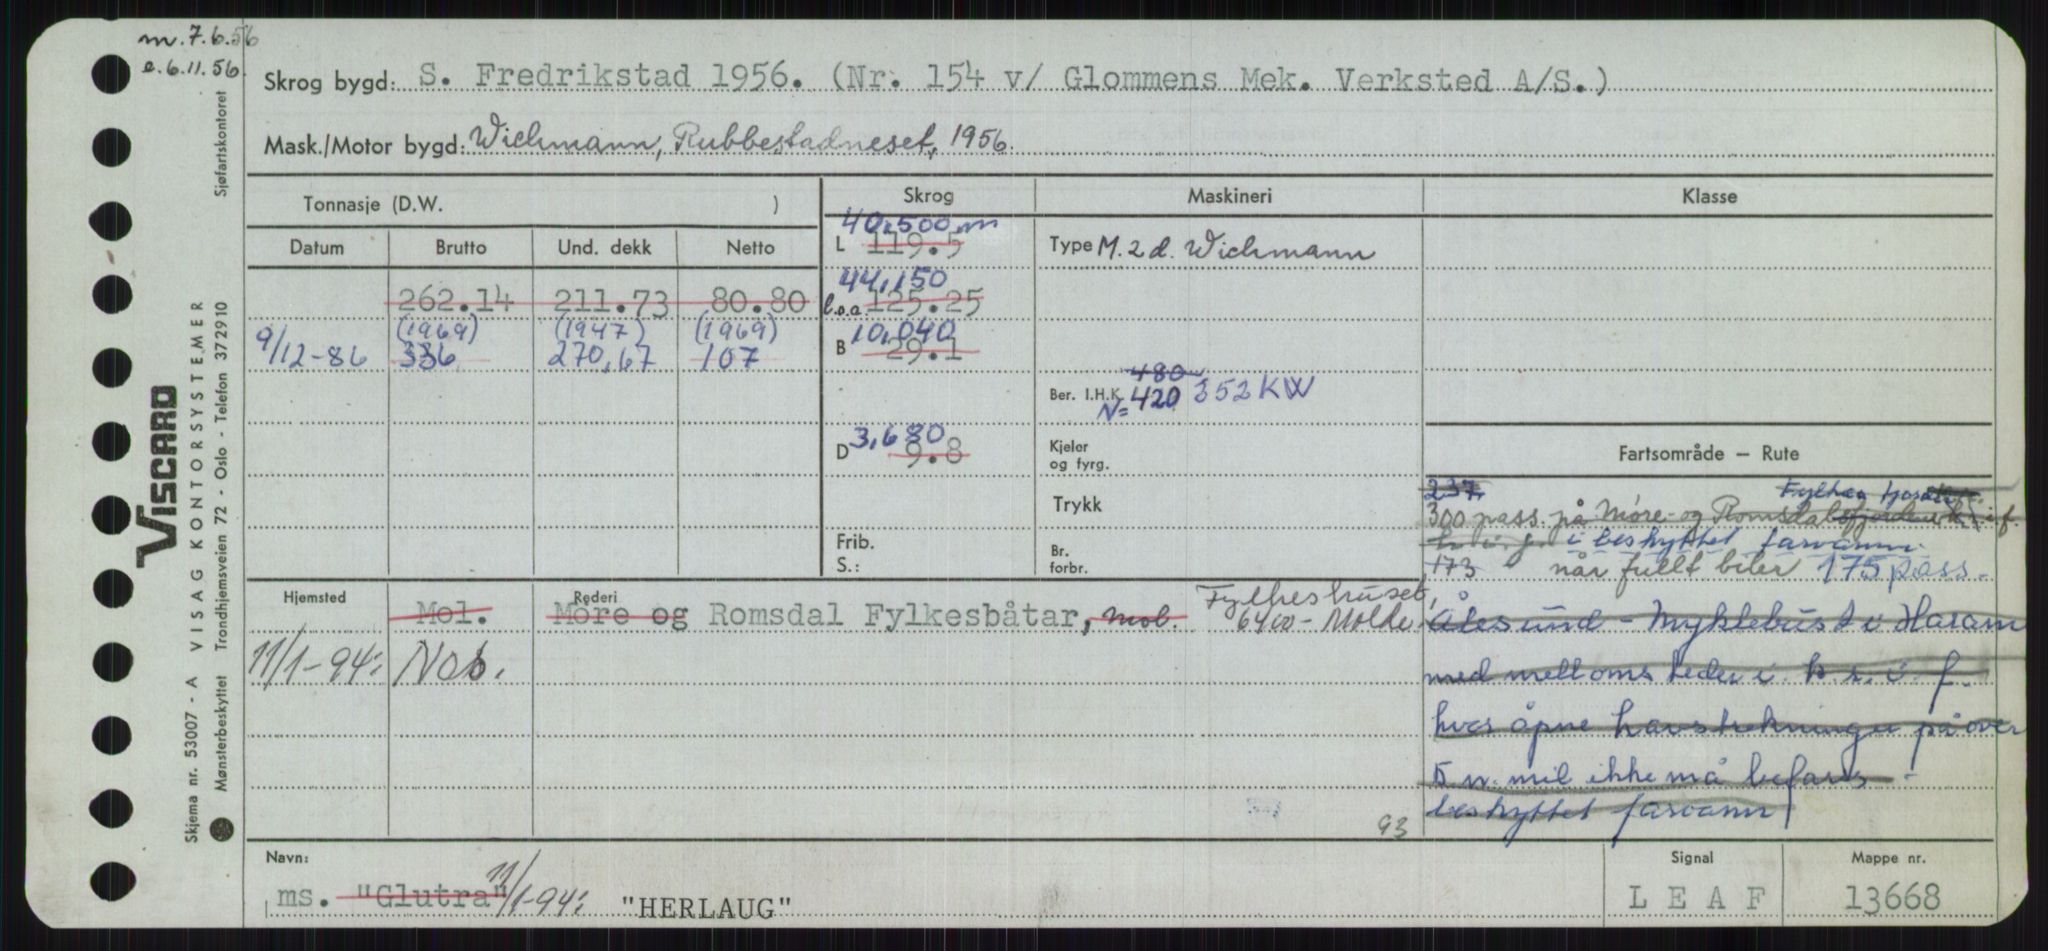 m. 7.6.56
e. 6.11.56
Skrog bygd: S. Fredrikstad 1956. (Nr. 154 v/ Glommens Mek. Verksted A/S.)
Mask./Motor bygd: Wichmann, Rubbestadneset, 1956.
Tonnasje (D.W. )
Skrog
Maskineri
Klasse
Datum Brutto Und. dekk Netto
40,500 m
L 119.5
Type M. 2 d. Wichmann
44,150
262.14 211.73 80.80
l.o.a. 125.25
(1969) (1947) (1969)
10,040
9/12-86 336 270,67 107
B 29.1
480
Ber. I.H.K. 420 352 KW
N=
3,680
D 9.8
Kjeler
og fyrg.
Trykk
Frib.
S.:
Br.
forbr.
Fartsområde — Rute
237
300 pass. på Møre- og Romsdalsfjordene i f.
i beskyttet farvann.
173 når fullt biler 175 pass.
Ålesund - Myklebust i Haram
med mellomsteder i k.s. i f.
hvor åpne havstrekninger på over
5 n. mil ikke må befares -
beskyttet farvann
Hjemsted
Rederi
Mol. Möre og Romsdal Fylkesbåtar, Mol. Fylkeshuset,
6400 - Molde.
11/1-94: Nos.
93
Navn:
ms. "Glutra" 11/1-94: "HERLAUG"
Signal
L E A F
Mappe nr.
13668
Sjøfartskontoret
VISCARD
VISAG KONTORSYSTEMER
Trondhjemsveien 72 - Oslo - Telefon 372910
Skjema nr. 53007 - A
Mønsterbeskyttet